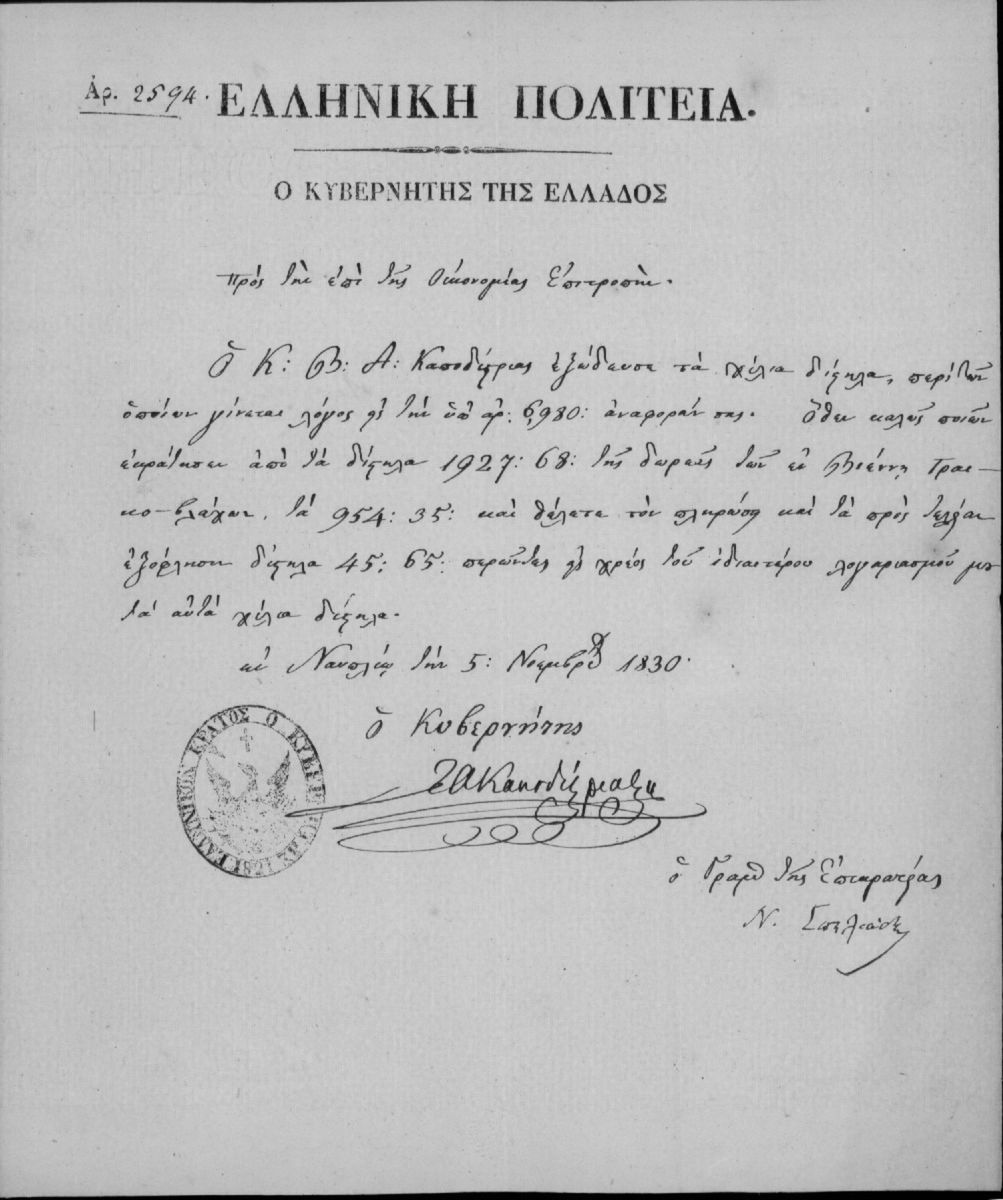 Ἀρ. 2594.
ΕΛΛΗΝΙΚΗ ΠΟΛΙΤΕΙΑ.
Ο ΚΥΒΕΡΝΗΤΗΣ ΤΗΣ ΕΛΛΑΔΟΣ
Πρὸς τὴν ἐπὶ τῆς Οἰκονομίας Ἐπιτροπήν.
Ὁ Κ: Β: Α: Καποδίστριας ἐξώδευσε τὰ χίλια δίστηλα, περὶ τῶν
ὁποίων γίνεται λόγος εἰς τὴν ὑπ' ἀρ: 6,980: ἀναφοράν σας. Ὅθεν καλῶς ποιῶν
ἐκράτησεν ἀπὸ τὰ δίστηλα 1927: 68: τῆς δωρεᾶς τῶν ἐν Βιέννῃ Γραι-
κο-βλάχων, τὰ 954: 35: καὶ θέλετε τὸν πληρώσῃ καὶ τὰ πρὸς τελείαν
ἐξόφλησιν δίστηλα 45: 65: περῶντες εἰς χρέος τοῦ ἰδιαιτέρου λογαριασμοῦ μου
τὰ αὐτὰ χίλια δίστηλα.
ἐν Ναυπλίῳ τὴν 5: Νοεμβρίου 1830.
ὁ Κυβερνήτης
Ι Α Καποδίστριας
ΕΛΛΗΝΙΚΟΝ ΚΡΑΤΟΣ Ο ΚΥΒΕΡΝΗΤΗΣ 1821
ὁ Γραμ τῆς Ἐπικρατείας
Ν. Σπηλιάδης